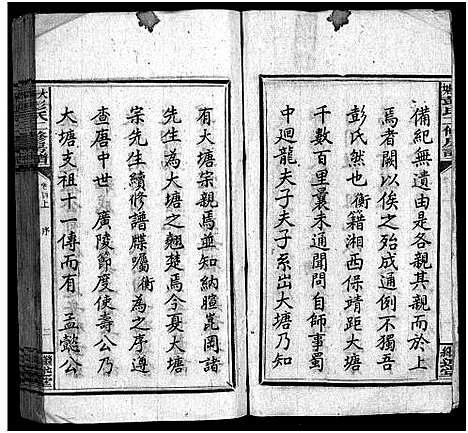 備紀無遺由是各親其親而於上
焉者闕以俟之殆成通例不獨吾
彭氏然也衡籍湘西保靖距大塘
千數百里曩未通聞問自師事蜀
中迴龍夫子夫子系出大塘乃知
有大塘宗親焉並知納暄崑岡諸
先生為大塘之翹楚焉今夏大塘
宗先生續修譜牒囑衡為之序遵
查唐中世 廣陵節度使壽公乃
大塘支祖十一傳而有 孟懿公
大彭氏二修房譜
卷首上 序